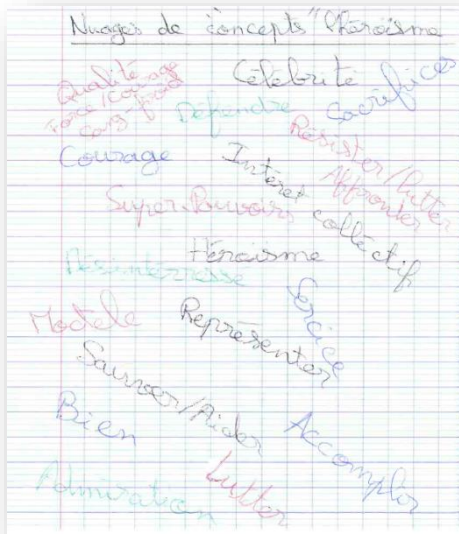 Nuages de concepts "l'héroïsme
Qualité
Force/Courage
Sang-froid
Célébrité
Sacrifices
Défendre
Courage
Résister/lutter
Affronter
Intérêt collectif
Super-Pouvoirs
Héroïsme
Désintérresse
Service
Modèle
Représenter
Sauver/Aider
Bien
Accomplir
Lutter
Admiration